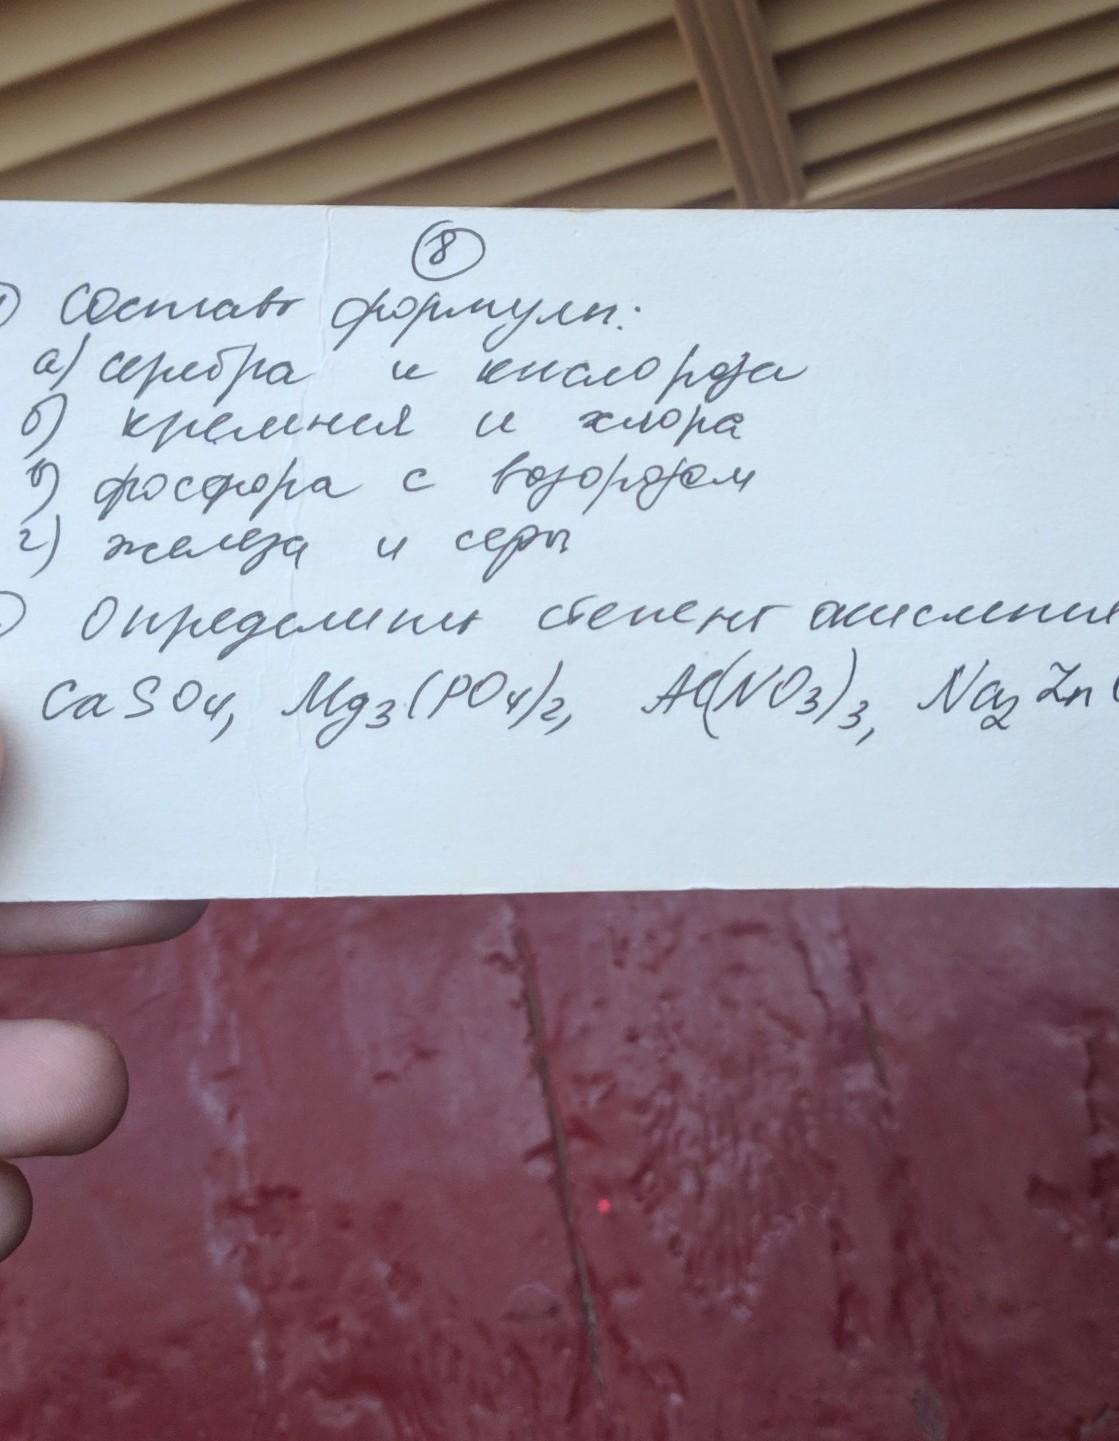 8
1) Составь формулы:
а) серебра и кислорода
б) кремния и хлора
в) фосфора с водородом
г) железа и серы
) Определить степень окисления
CaSO4, Mg3(PO4)2, Al(NO3)3, Na2Zn(